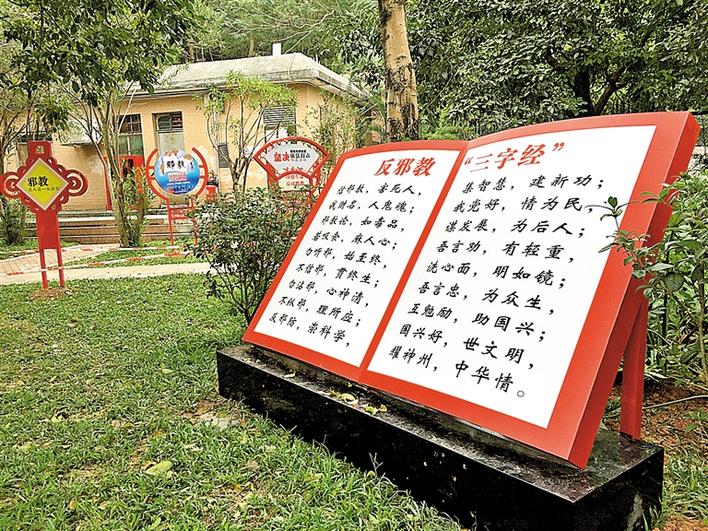 反邪教
信邪教，害死人，
我财名，人鬼魂；
邪教论，如毒品，
若吸食，麻人心；
勿听邪，始至终，
不信邪，贯终生；
勿沾邪，心神清，
不纵邪，理所应；
反邪防，崇科学，
“三字经”
集智慧，建新功；
我党好，情为民，
谋发展，为后人；
吾言劝，有轻重，
洗心面，明如镜；
吾言忠，为众生，
互勉励，助国兴；
国兴好，世文明，
耀神州，中华情。
邪教
邪教
坚决